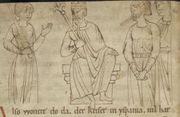 lso wonete do da. der keiser in yspania. im har